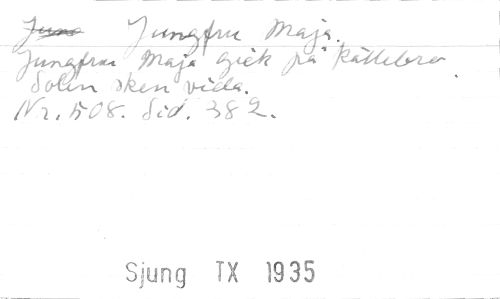 Jungfru Maja.
Jungfru Maja gick på källebro
Solen sken vida.
Nr. 508. Sid. 382.
Sjung TX 1935